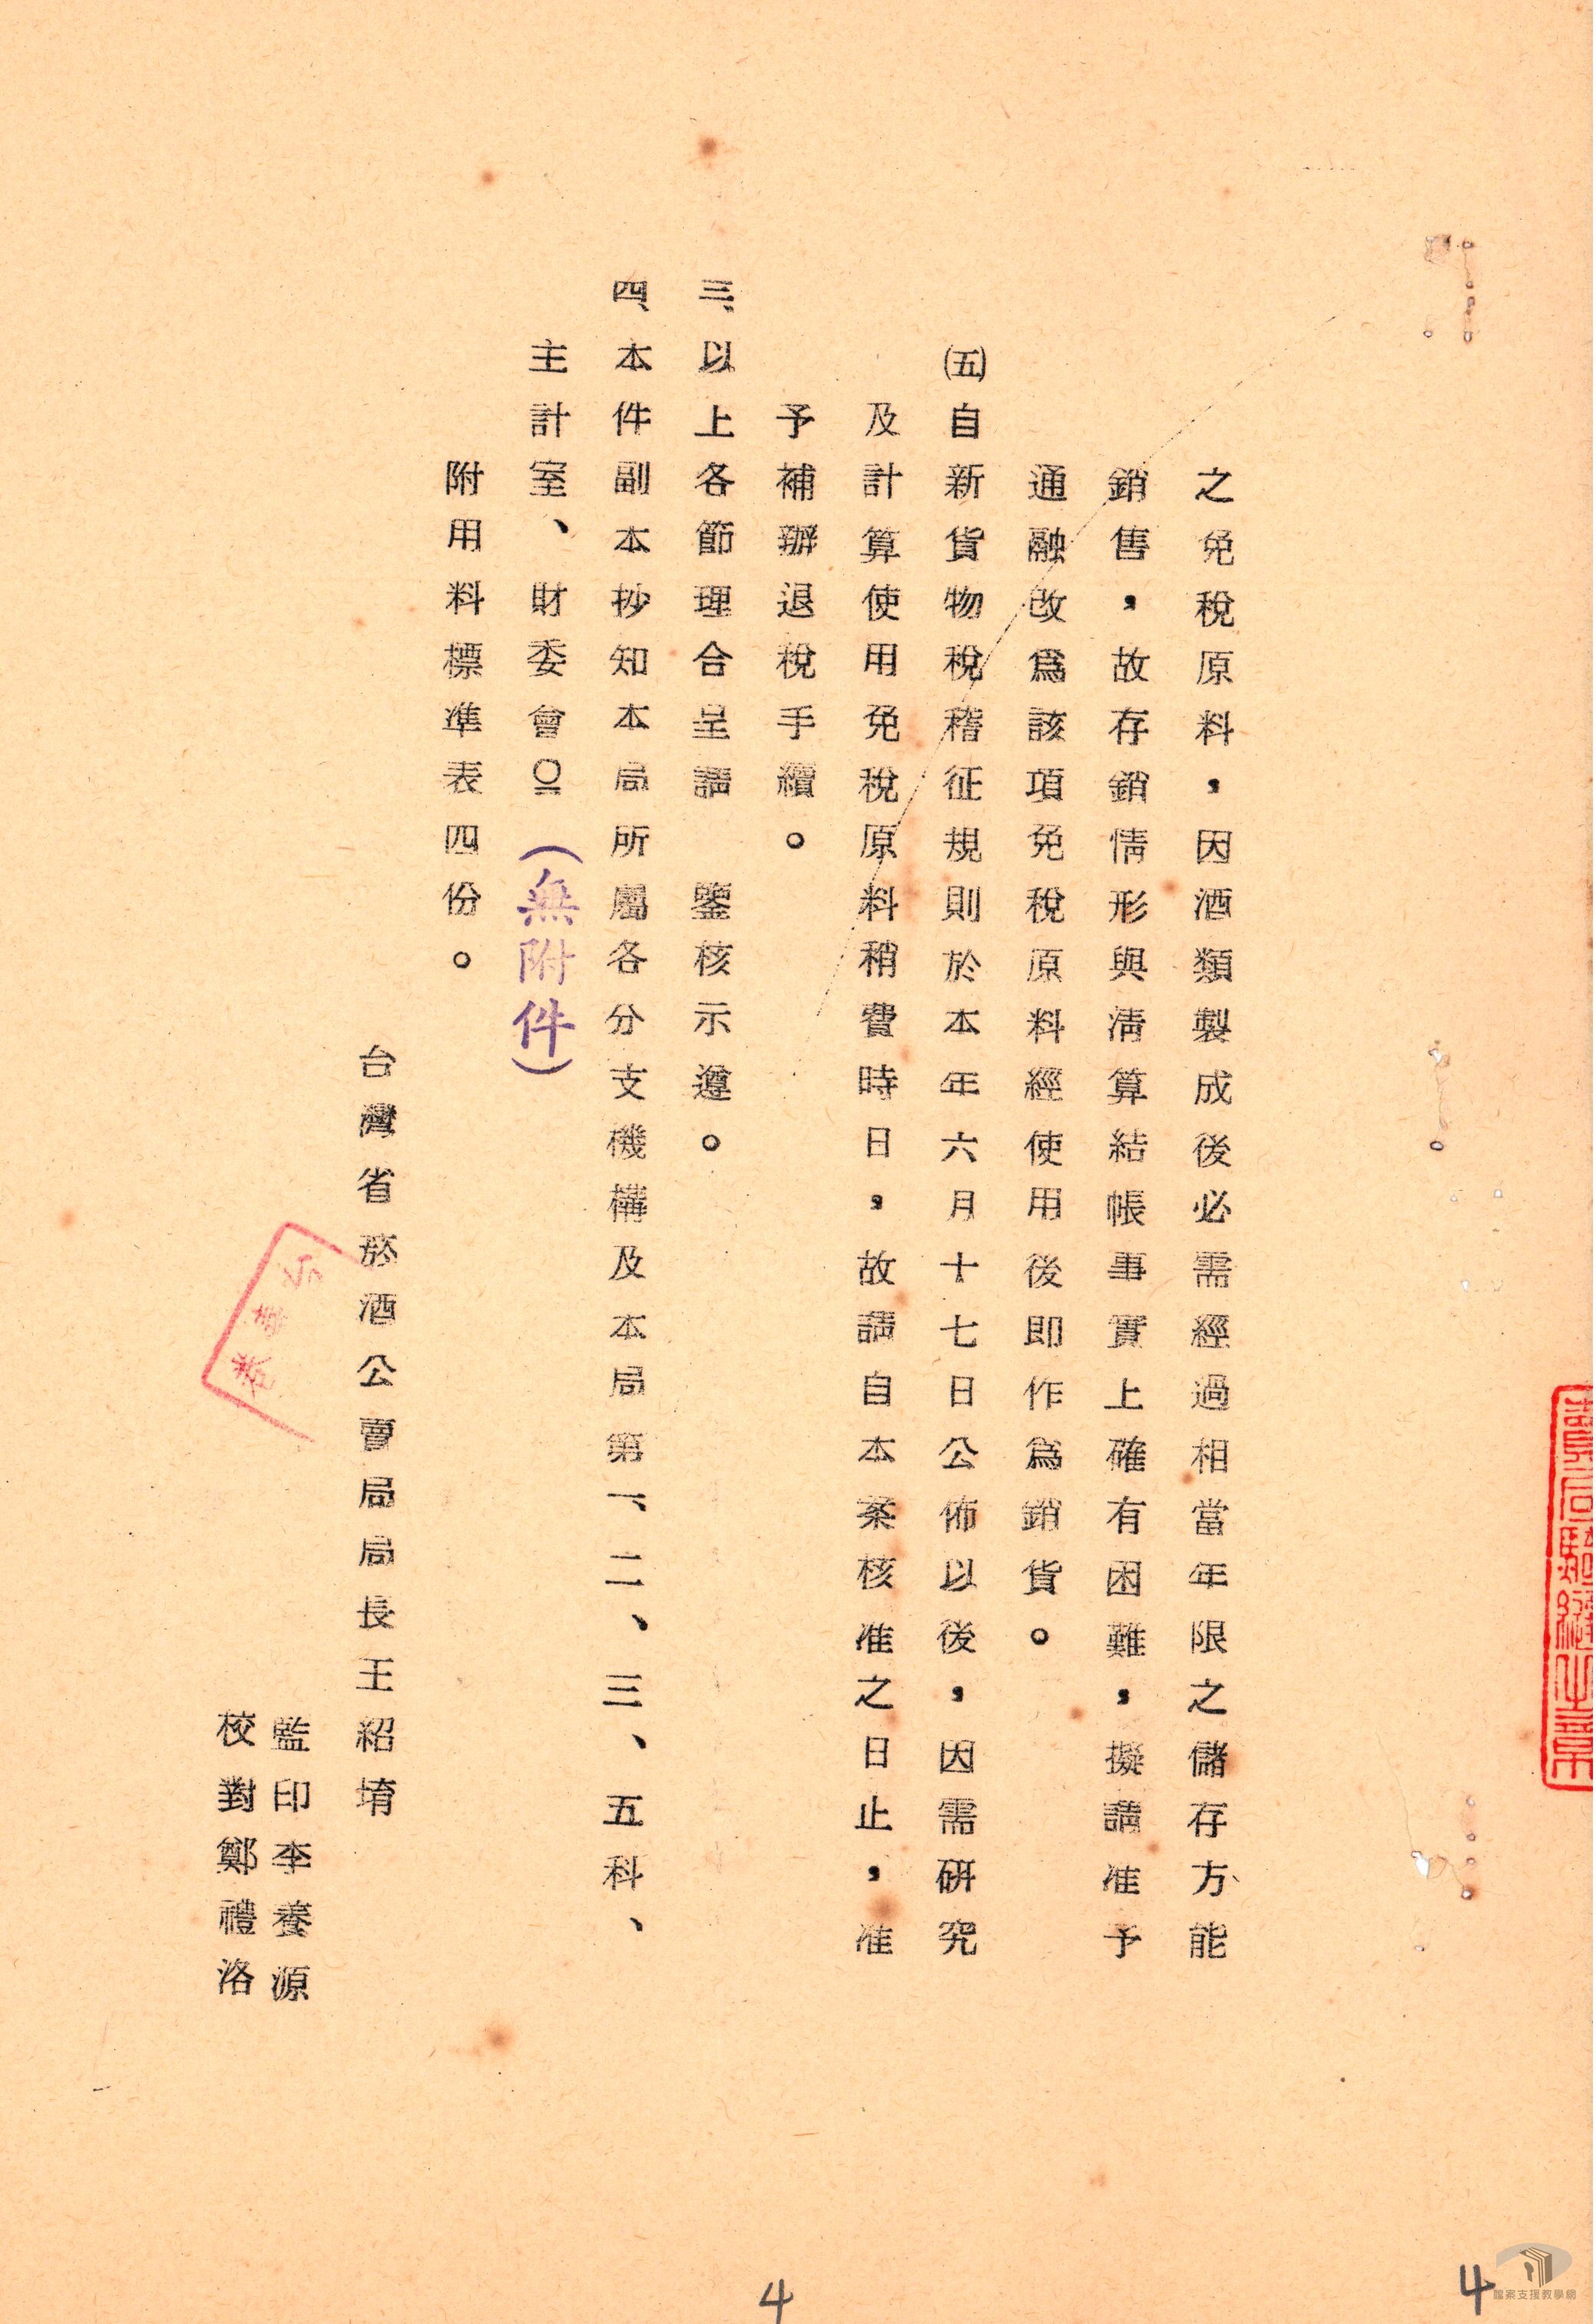 之免稅原料，因酒類製成後必需經過相當年限之儲存方能
銷售，故存銷情形與清算結帳事實上確有困難，擬請准予
通融改爲該項免稅原料經使用後即作爲銷貨。
㈤自新貨物稅稽征規則於本年六月十七日公佈以後，因需研究
及計算使用免稅原料稍費時日，故請自本案核准之日止，准
予補辦退稅手續。
三、以上各節理合呈請　鑒核示遵。
四、本件副本抄知本局所屬各分支機構及本局第一、二、三、五科、
主計室、財委會
（無附件）
附用料標準表四份。
台灣省菸酒公賣局局長王紹堉
監印李養源
校對鄭禮洛
4
4
檔案支援教學網